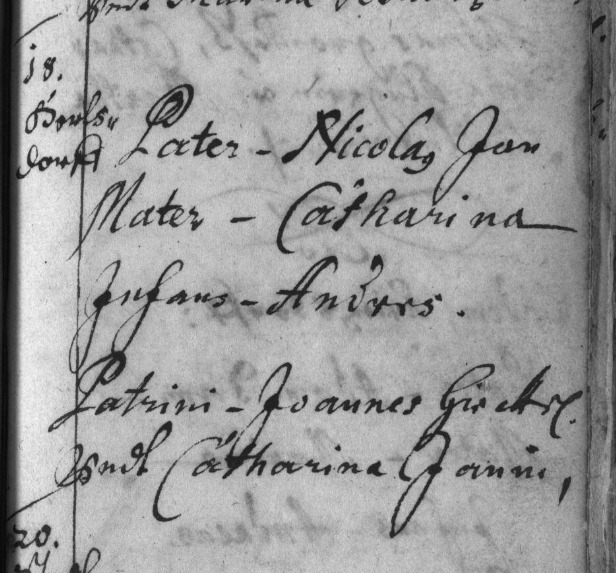 18.
dorff
Pater - Nicolaus Jan
Mater - Catharina
Infans - Andres.
Patrini - Joannes
Undt Catharina Janin,
20.